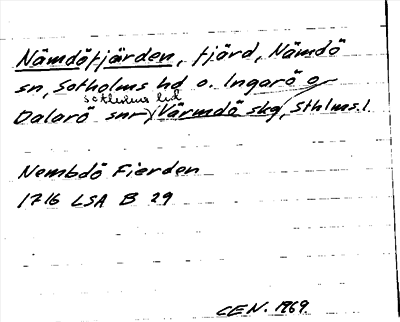 Nämdöfjärden, fjärd, Nämdö
sn, Sotholms hd o. Ingarö o
Sotholms hd
Dalarö snr, Värmdö skg, Sthlms l.
Nembdö Fierden
1716 LSA B 29
CEN. 1969.